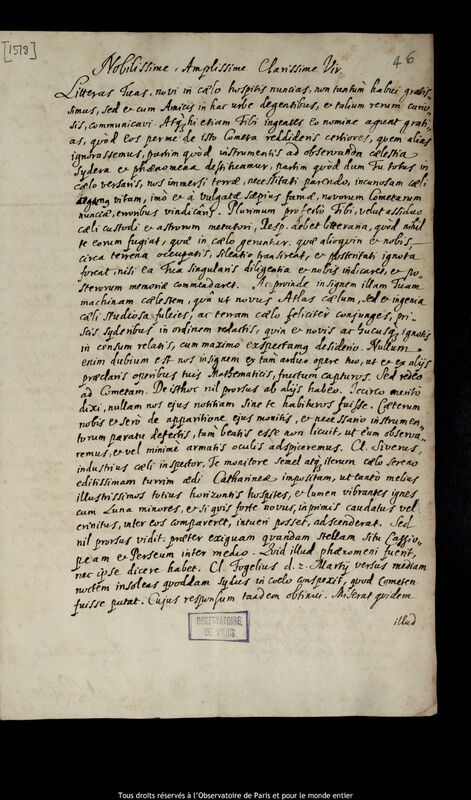 [1518]
46
Nobilissime, Amplissime Clarissime Vir.
Litteras Tuas, novi in cælo hospitis nuncias, non tantùm habui gratis-
simas, sed et cum Amicis in hac urbe degentibus, et talium rerum curio-
sis, communicavi. Atq. hi etiam Tibi ingentes eo nomine agunt grati-
as, quòd eos per me de isto Cometa reddideris certiores, quem aliàs
ignorassemus, partim quòd instrumentis ad observanda cælestia
Sydera et phænomena destituamur, partim quòd dum Tu totus in
cælo versaris, nos immersi terræ, necessitati parendo, incuriosam cæli
vitam, imò et à vulgatæ sæpius famæ, novorum Cometarum
nunciæ, erroribus vindicans. Plurimum profectò Tibi, velut assiduo
cæli custodi et astrorum metatori, Resp. debet litteraria, quod nihil
te eorum fugiat, quæ in cælo geruntur, quæ alioquin et nobis,
circa terrena occupatis, silentio transirent, et posteritati ignota
forent, nisi ea Tua singularis diligentia et nobis indicaret, et po-
sterorum memoriæ commendaret. Ac proinde insignem illam Tuam
machinam cælestem, quâ ut novus Atlas cælum, sed et ingenia
cæli studiosa fulcies, ac terram cælo feliciter conjunges, pri-
scis syderibus in ordinem relatis, quin et novis ac hucusq. ignotis
in censum relatis, cum maximo exspectamus desiderio. Nullum
enim dubium est nos insignem ex tam arduo opere tuo, ut et ex alijs
præclaris operibus tuis Mathematicis, fructum capturos. Sed redeo
ad Cometam. De isthoc nil prorsus ab alijs habeo. Icirco meritò
dixi, nullam nos ejus notitiam sine te habituros fuisse. Cæterum
nobis et serò de apparitione ejus monitis, et necessario instrumen-
torum paratu defectis, tam beatis esse non licuit, ut eum observa-
remus, et vel minimè armatis oculis adspiceremus. Cl. Siverus,
industrius cæli inspector, Te monitore semel atq. iterum cælo sereno
editissimam turrim ædi Catharinæ impositam, ut tantò meliùs
illustrissimos totius horizontis hospites, et lumen vibrantes ignes
cum Luna minores, et si quis fortè novus, inprimis caudatus vel
crinitus, inter eos compareret, intueri posset, adscenderat. Sed
nil prorsus vidit, præter exiguam quandam stellam situ Cassio-
peam et Perseum inter medio. Quid illud phænomeni fuerit,
nec ipse dicere habet. Cl. Fogelius d. 2. Martij versus mediam
noctem insolens quoddam sydus in coelo conspexit, quod Cometen
fuisse putat. Cujus responsum tandem obtinui. Miserat quidem
illud
OBSERVATOIRE
DE PARIS
Tous droits réservés à l'Observatoire de Paris et pour le monde entier